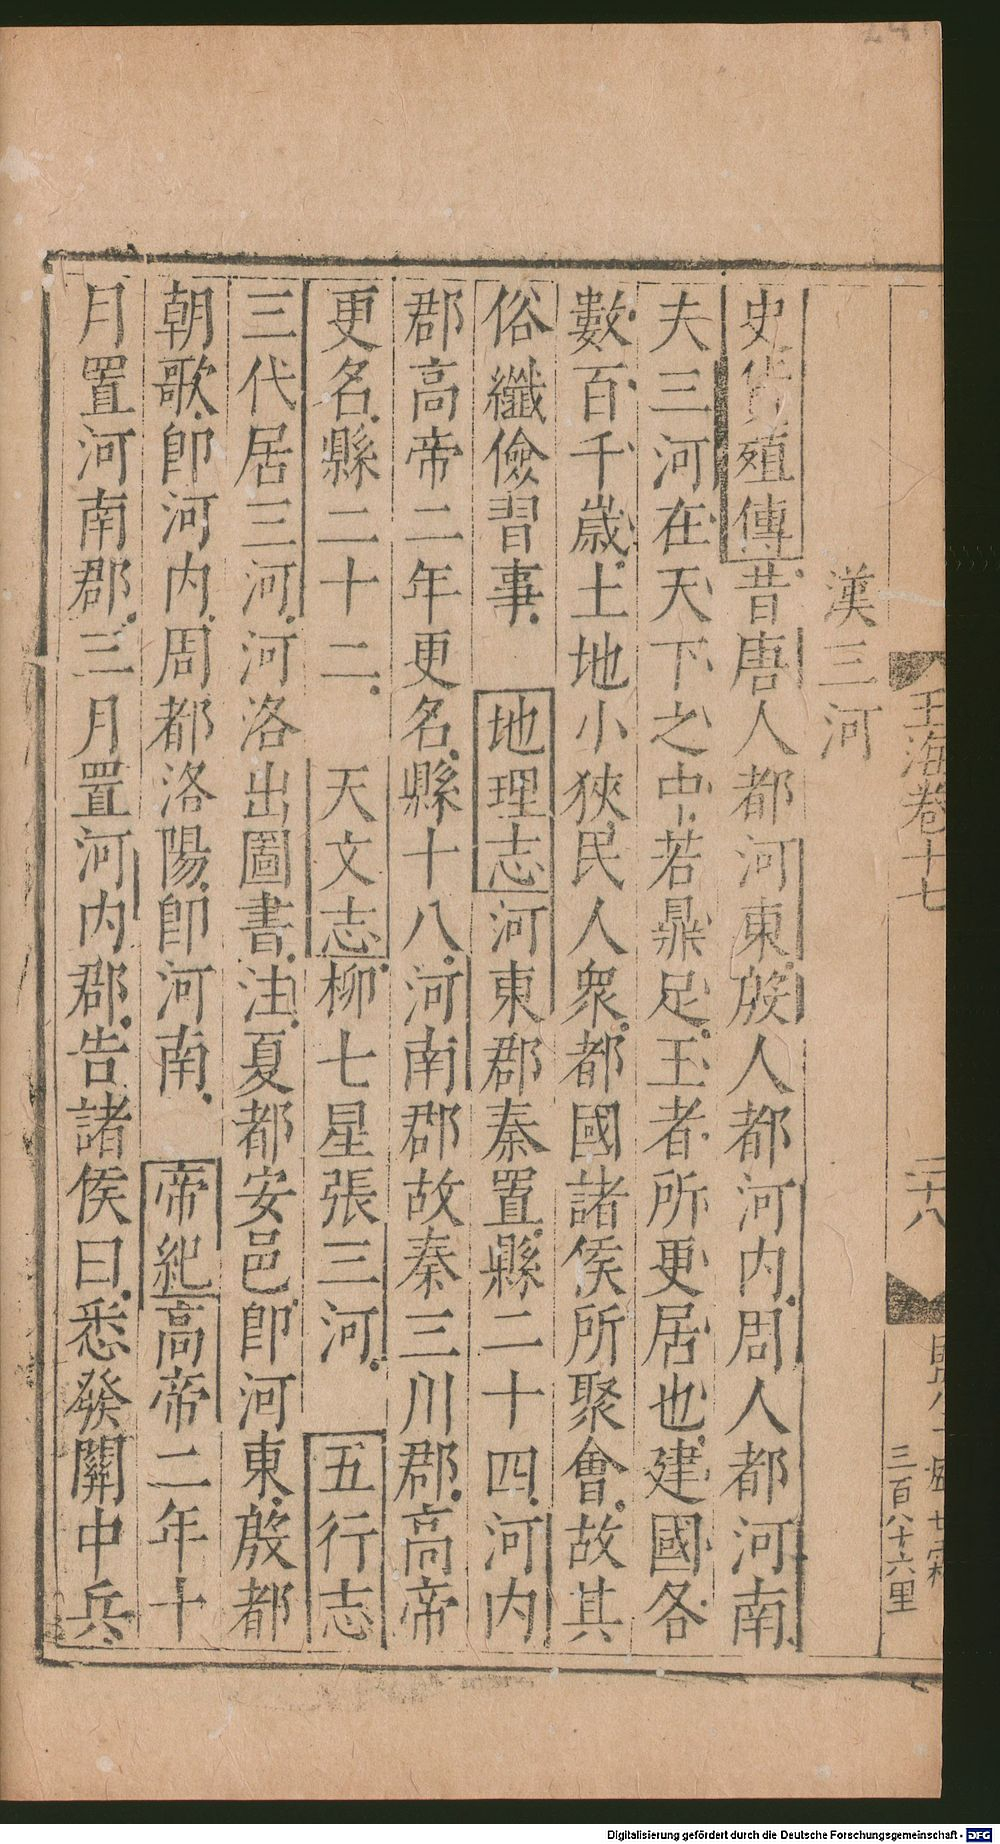 漢三河
史貨殖傳昔唐人都河東殷人都河內周人都河南
夫三河在天下之中若鼎足王者所更居也建國各
數百千歲土地小狹民人衆都國諸侯所聚會故其
俗纖儉習事 地理志河東郡秦置縣二十四河內
郡高帝二年更名縣十八河南郡故秦三川郡高帝
更名縣二十二 天文志柳七星張三河 五行志
三代居三河河洛出圖書注夏都安邑卽河東殷都
朝歌卽河內周都洛陽卽河南 帝紀高帝二年十
月置河南郡三月置河內郡告諸侯曰悉發關中兵
玉海卷十七
二十八
三百八十六里
Digitalisierung gefördert durch die Deutsche Forschungsgemeinschaft - DFG